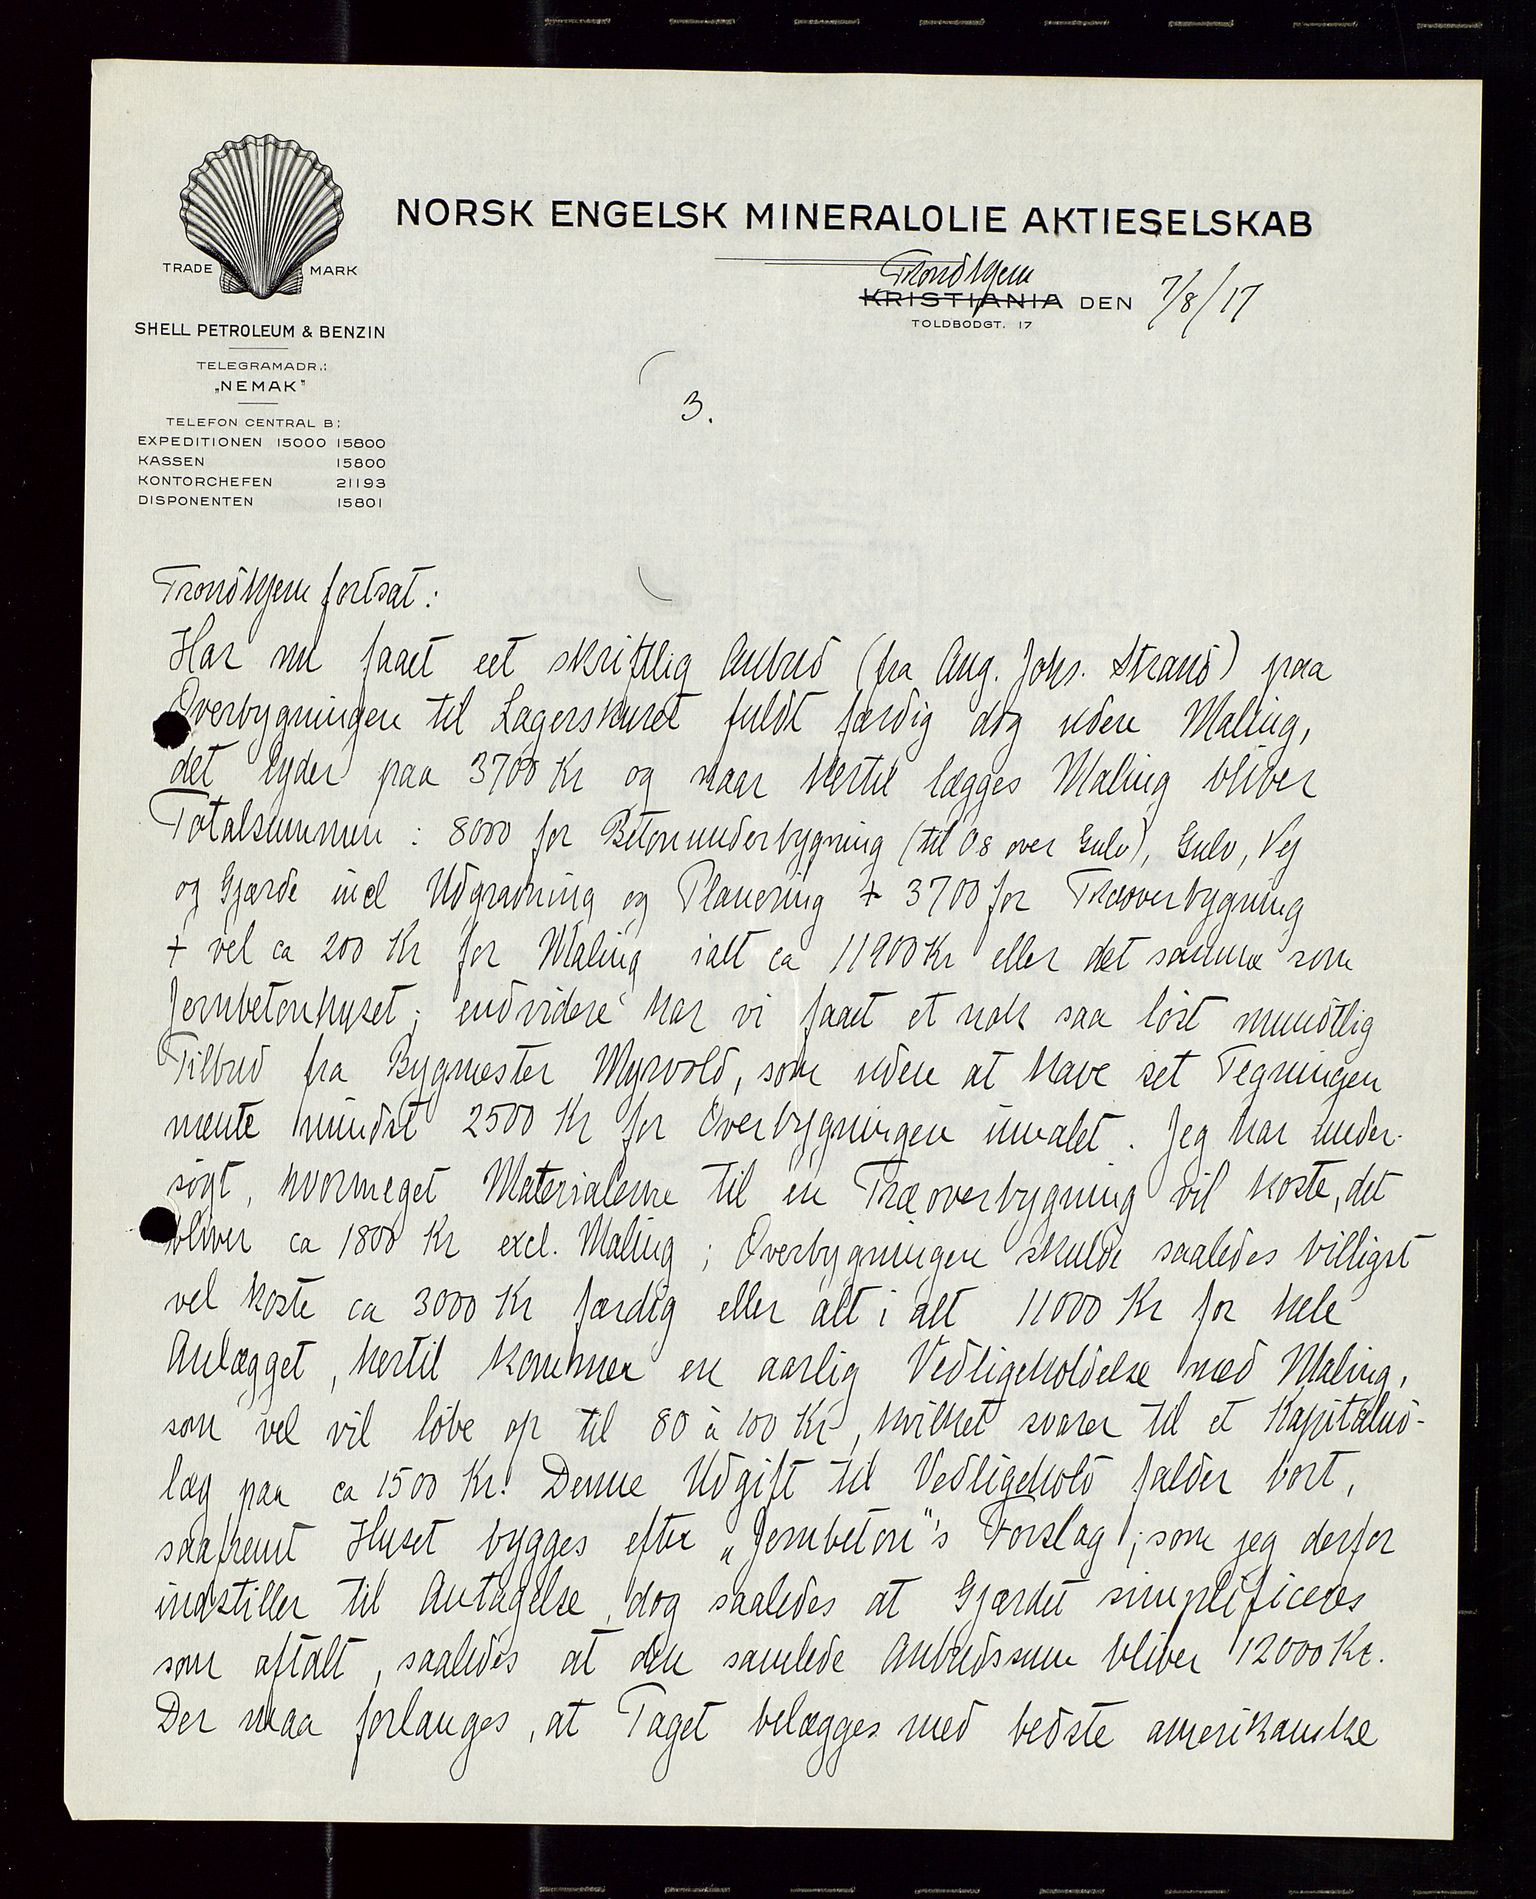 NORSK ENGELSK MINERALOLIE AKTIESELSKAB
TRADE MARK
Trondhjem
KRISTIANIA DEN 7/8/17
TOLDBODGT. 17
SHELL PETROLEUM & BENZIN
TELEGRAMADR.:
„NEMAK"
TELEFON CENTRAL B:
EXPEDITIONEN 15000 15800
KASSEN 15800
KONTORCHEFEN 21193
DISPONENTEN 15801
3.
Trondhjem fortsat:
Har nu faaet eet skriftlig Anbud (fra Ang. Johs. Strand) paa
Overbygningen til Lagerskuret fuldt færdig dog uden Maling,
det lyder paa 3700 Kr og naar hertil lægges Maling bliver
Totalsummen: 8000 for Betonunderbygning (til 08 over Gulv), Gulv, Vej
og Gjærde incl Udgravning og Planering + 3700 for Træoverbygning
+ vel ca 200 Kr for Maling ialt ca 11900 Kr eller det samme som
Jernbetonhuset; endvidere har vi faaet et nok saa løst mundtlig
Tilbud fra Bygmester Myrvold, som uden at have set Tegningen
mente mindst 2500 Kr for Overbygningen umalet. Jeg har under-
søgt, hvormeget Materialerne til en Træoverbygning vil koste, det
bliver ca 1800 Kr excl. Maling; Overbygningen skulde saaledes billigst
vel koste ca 3000 Kr færdig eller alt i alt 11000 Kr for hele
Anlægget, hertil kommer en aarlig Vedligeholdelse med Maling,
som vel vil løbe op til 80 à 100 Kr, hvilket svarer til et Kapitalud-
læg paa ca 1500 Kr. Denne Udgift til Vedligehold falder bort,
saafremt Huset bygges efter „Jernbeton"'s Forslag, som jeg derfor
indstiller til Antagelse, dog saaledes at Gjærdet simplificeres
som aftalt, saaledes at den samlede Anbudssum bliver 12000 Kr.
Der maa forlanges, at Taget belægges med bedste amerikanske